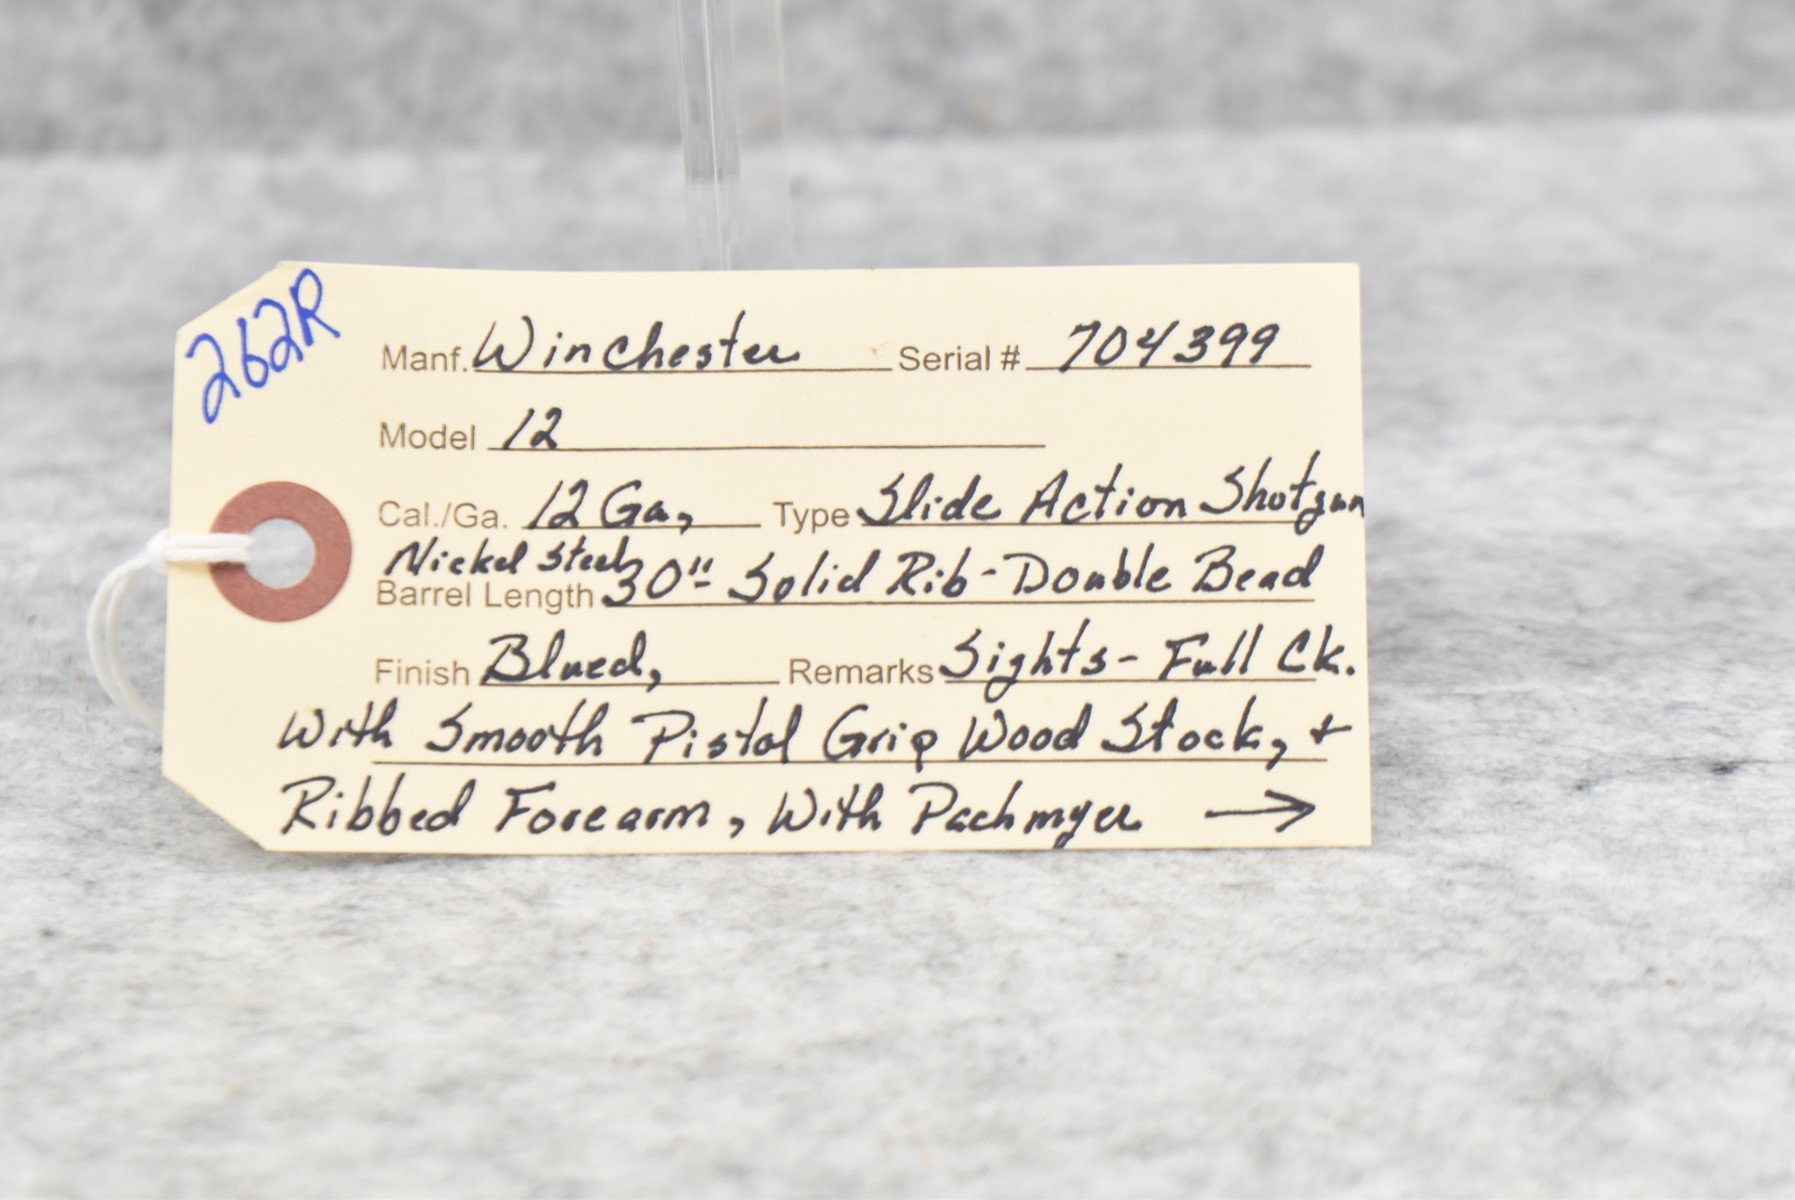 262R
Manf. Winchester Serial # 704399
Model 12
Cal./Ga. 12 Ga, Type Slide Action Shotgun
Nickel Steel
Barrel Length 30"- Solid Rib-Double Bead
Finish Blued, Remarks Sights- Full Ck.
With Smooth Pistol Grip Wood Stock, +
Ribbed Forearm, With Pachmyer →